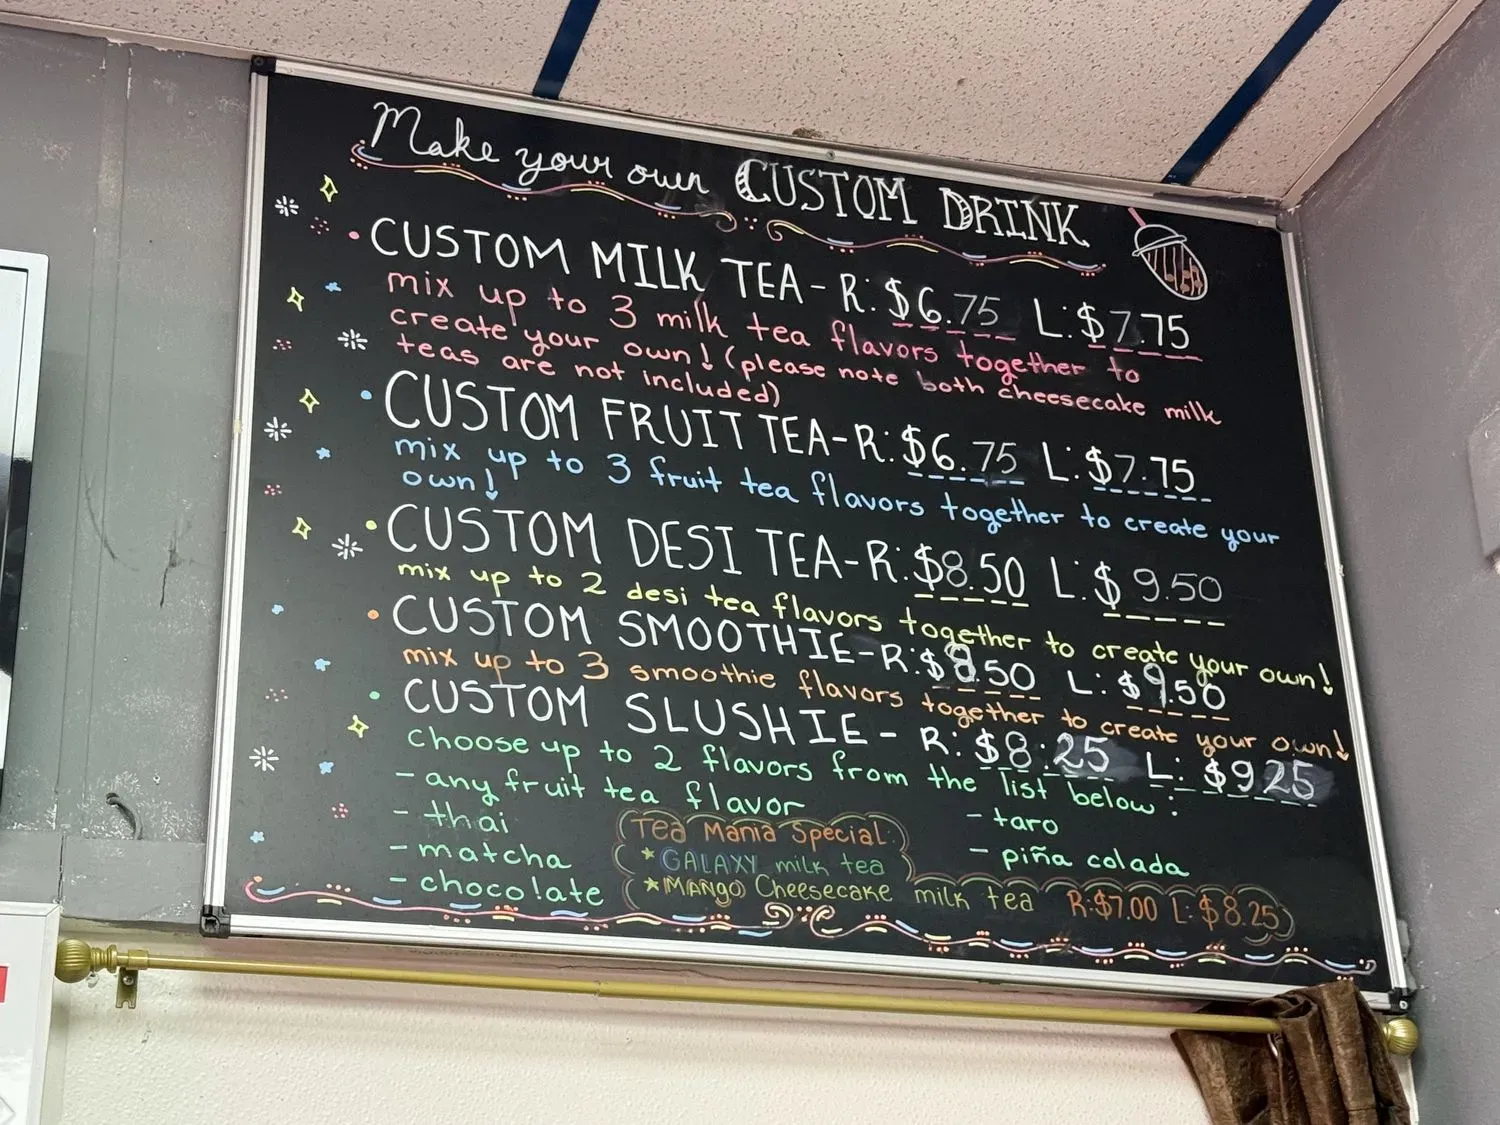 Make your own CUSTOM DRINK
• CUSTOM MILK TEA - R: $6.75 L: $7.75
mix up to 3 milk tea flavors together to
create your own! (please note both cheesecake milk
teas are not included)
• CUSTOM FRUIT TEA - R: $6.75 L: $7.75
mix up to 3 fruit tea flavors together to create your
own!
• CUSTOM DESI TEA - R: $8.50 L: $9.50
mix up to 2 desi tea flavors together to create your own!
• CUSTOM SMOOTHIE - R: $8.50 L: $9.50
mix up to 3 smoothie flavors together to create your own!
• CUSTOM SLUSHIE - R: $8.25 L: $9.25
choose up to 2 flavors from the list below:
- any fruit tea flavor
- thai
- matcha
- chocolate
- taro
- piña colada
Tea Mania Special:
* GALAXY milk tea
* MANGO Cheesecake milk tea R: $7.00 L: $8.25